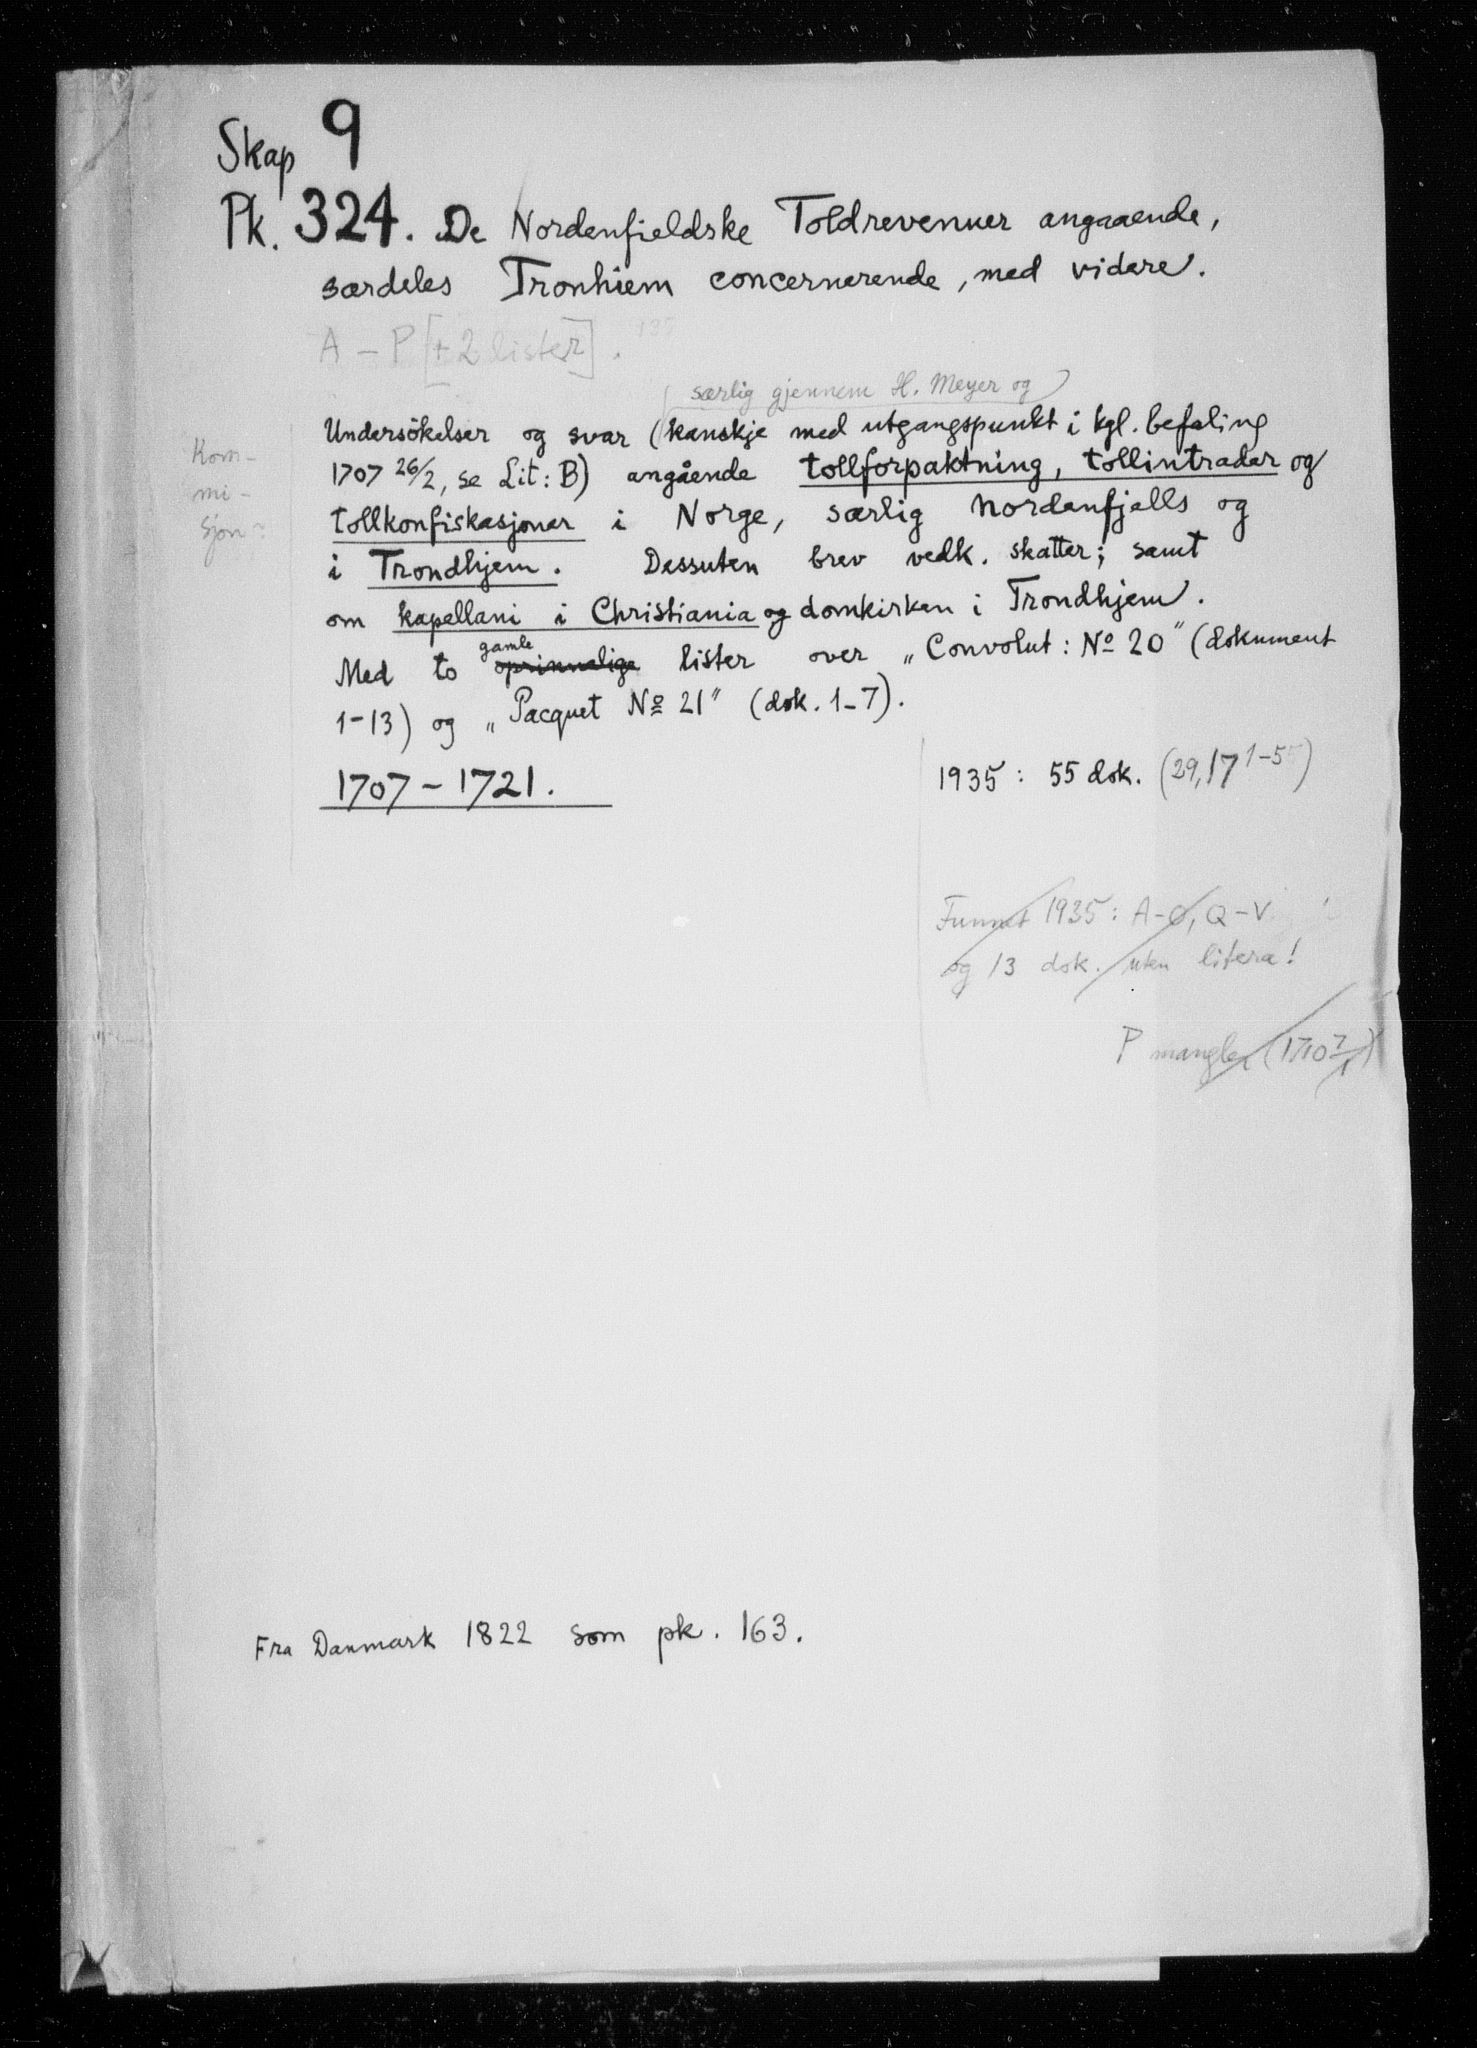 Skap 9
Pk. 324. De Nordenfieldske Toldrevenuer angaaende,
særdeles Tronhiem concernerende, med videre.
A – P [+ 2 lister].
særlig gjennem H. Meyer og
Undersökelser og svar (kanskje med utgangspunkt i kgl. befaling
1707 26/2, se Lit: B) angående tollforpaktning, tollintrader og
tollkonfiskasjoner i Norge, særlig nordenfjells og
i Trondhjem. Dessuten brev vedk. skatter; samt
om kapellani i Christiania og domkirken i Trondhjem.
gamle
Med to oprinnelige lister over „Convolut: No 20" (dokument
1-13) og „Pacquet No 21" (dok. 1-7).
Kom-
mi-
sjon?
1707 – 1721.
1935: 55 dok. (29,17 1-55)
Funnet 1935: A-O, Q-V
og 13 dok. uten litera!
P mangler (1710 7/1)
Fra Danmark 1822 som pk. 163.